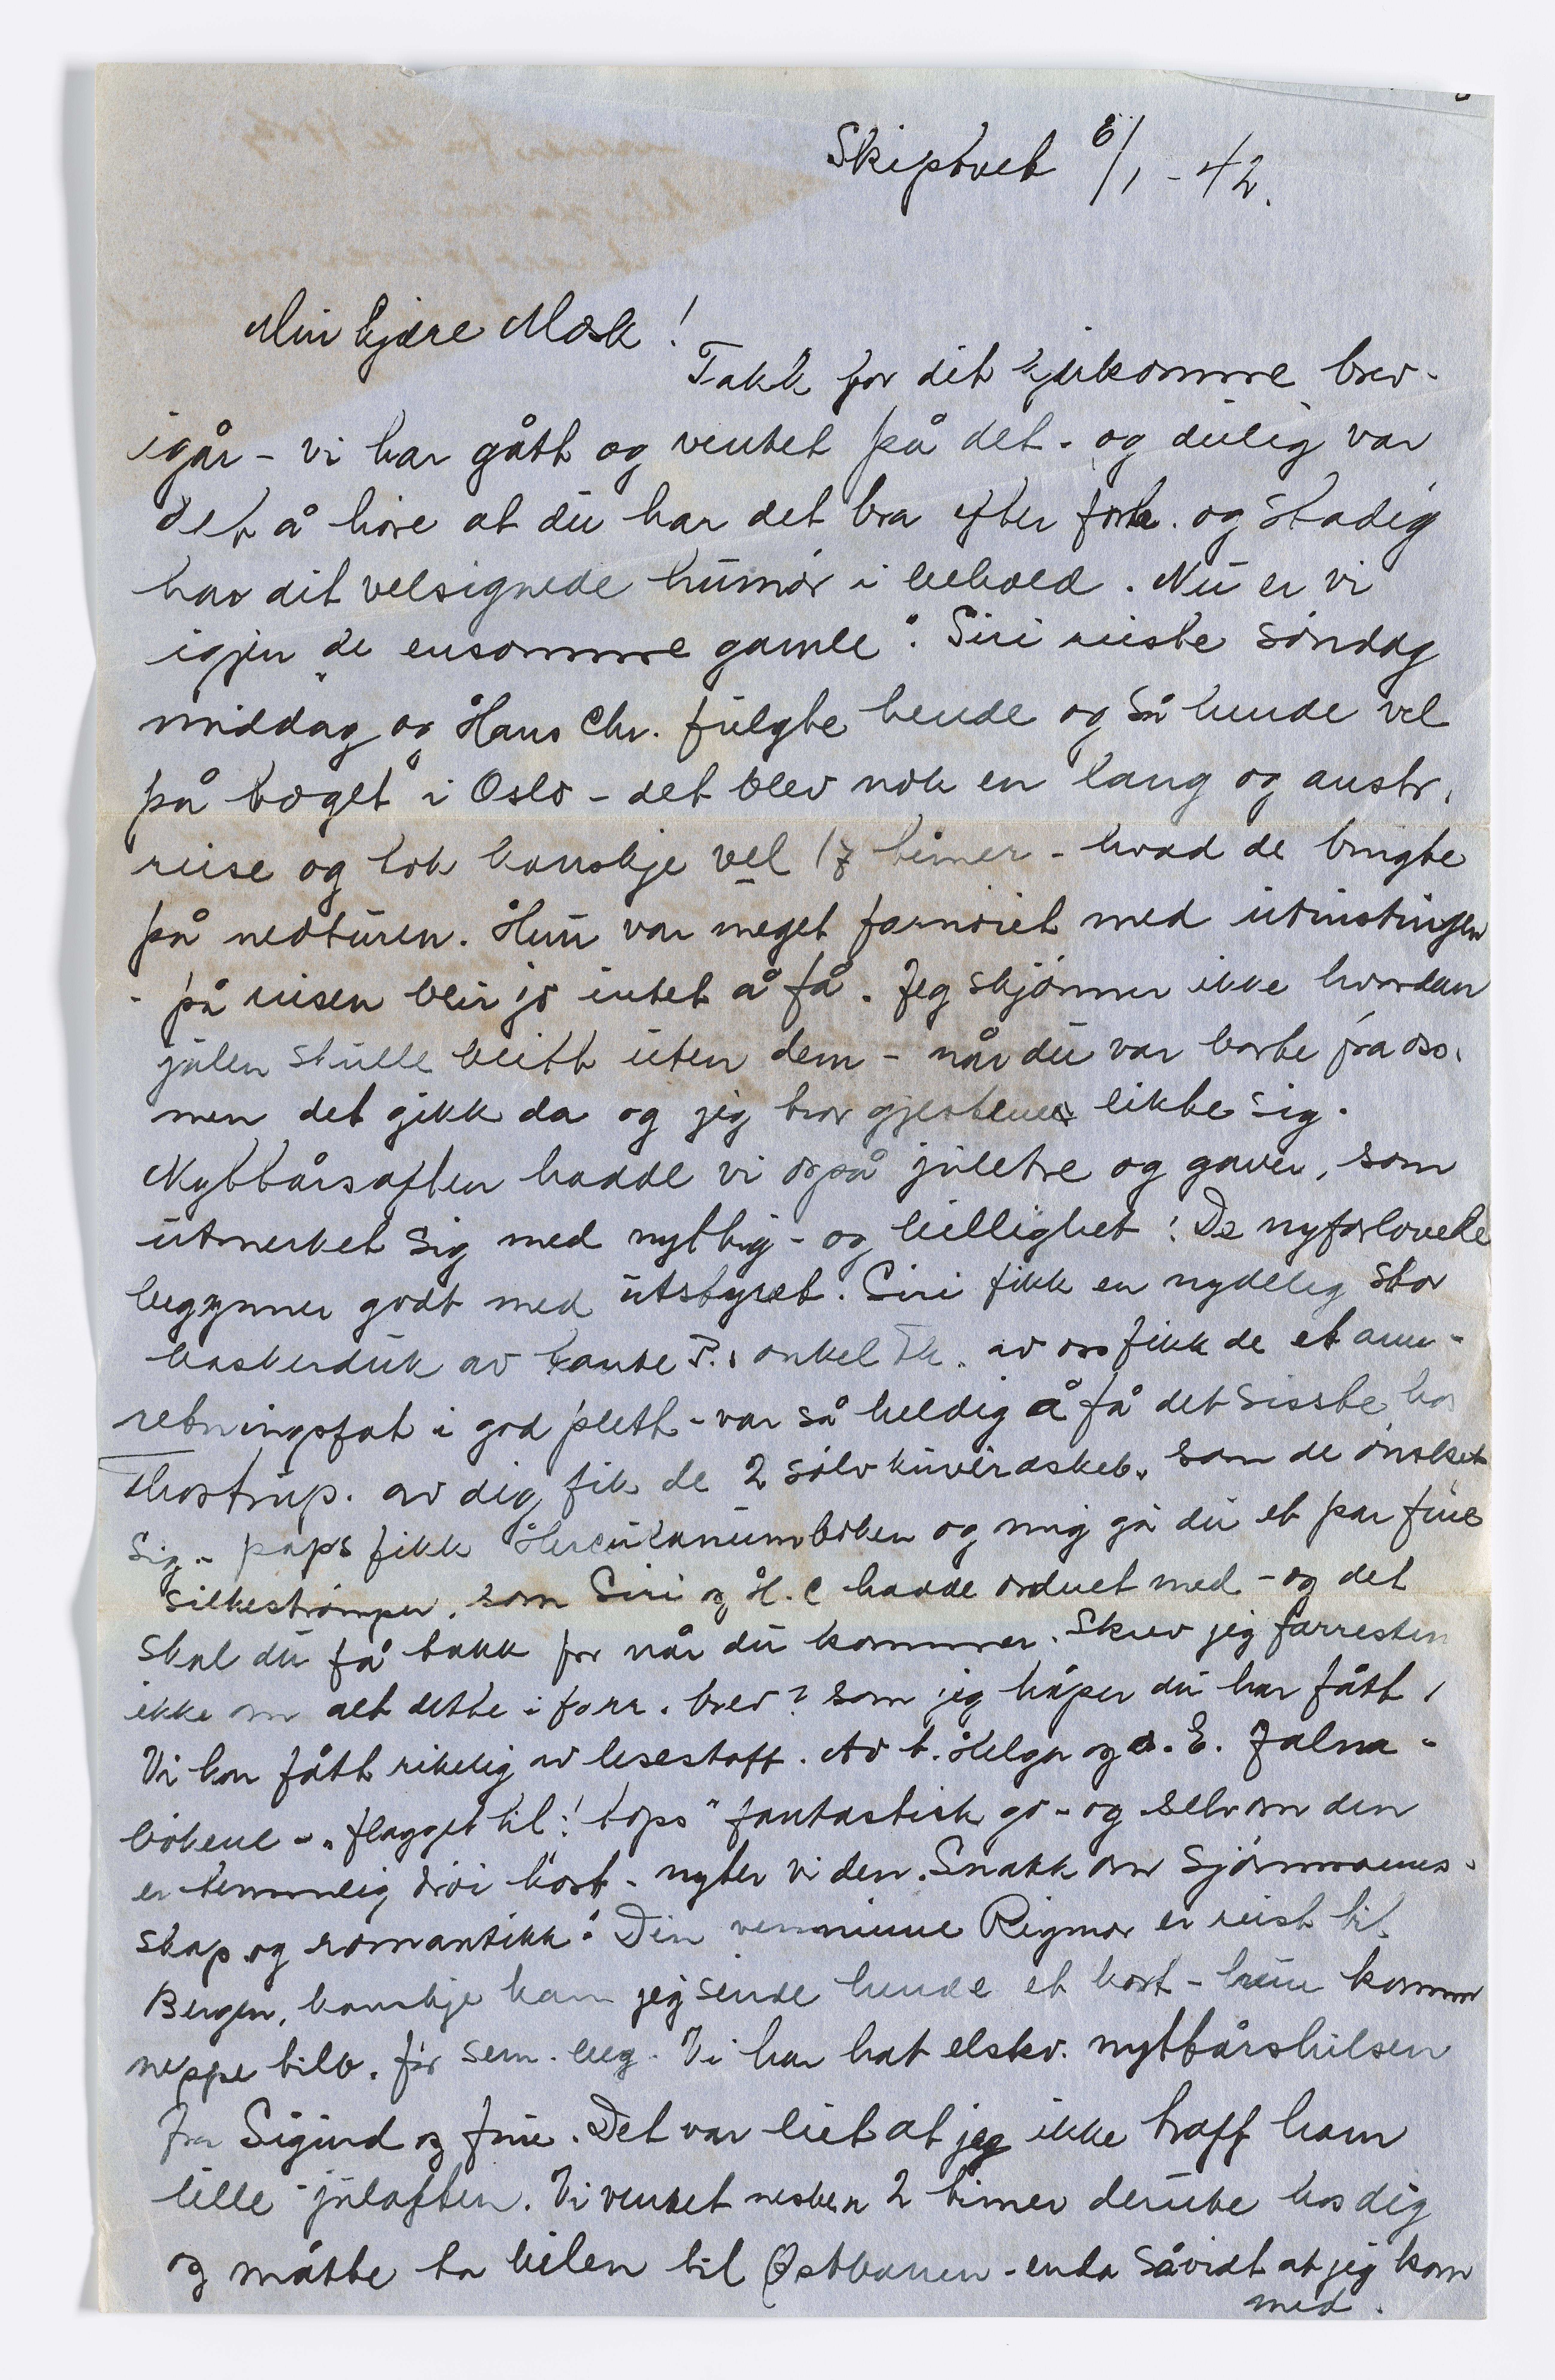 Skiptvet 6/1 - 42.
Min kjære Mosk!
Takk for dit kjærkomne brev
igår - vi har gått og ventet på det - og deilig var
det å høre at du har det bra efter forh. og stadig
har dit velsignede humør i behold. Nu er vi
igjen "de ensomme gamle". Siri reiste søndag
middag og Hans Chr. fulgte hende og så hende vel
på toget i Oslo - det blev nok en lang og anstr.
reise og tok kanskje vel 17 timer - hvad de brugte
på nedturen. Hun var meget fornøiet med
- på reisen blir jo intet å få. Jeg skjønner ikke hvordan
julen skulle blitt uten dem - når du var borte fra oss.
men det gikk da og jeg tror gjestene likte sig.
Nyttårsaften hadde vi også juletre og gaver, som
utmerket sig med nyttig- og billighet! De nyforlovede
begynner godt med utstyret. Siri fikk en nydelig stor
duk av tante P. & onkel Th. av oss fikk de et anr-
retningsfat i god plett - var så heldig å få det sisste hos
Thostrup. av dig fik de 2 sølv som de ønsket
sig - paps fikk Herculanumboken og mig ga du et par fine
silkestrømper, som Siri og H. C hadde ordnet med - og det
skal du få takk for når du kommer. Skrev jeg forresten
ikke om alt dette i forr. brev? som jeg håper du har fått!
Vi har fått rikelig av lesestoff. Av t. Helga og E.
bøkene - "flagget til! tops" fantastisk go - og selvom den
er temmelig drøi kost - nyter vi den. Snakk om sjømanns-
skap og romantikk! Din venninne Rigmor er reist til
Bergen, kanskje kan jeg sende hende et kort - hun kommer
neppe tilb. før sem. beg. Vi har hat elskv. nyttårshilsen
fra Sigurd og frue. Det var leit at jeg ikke traff ham
lille julaften. Vi ventet nesten 2 timer derute hos dig
og måtte ta bilen til Østbanen - enda såvidt at jeg kom
med.